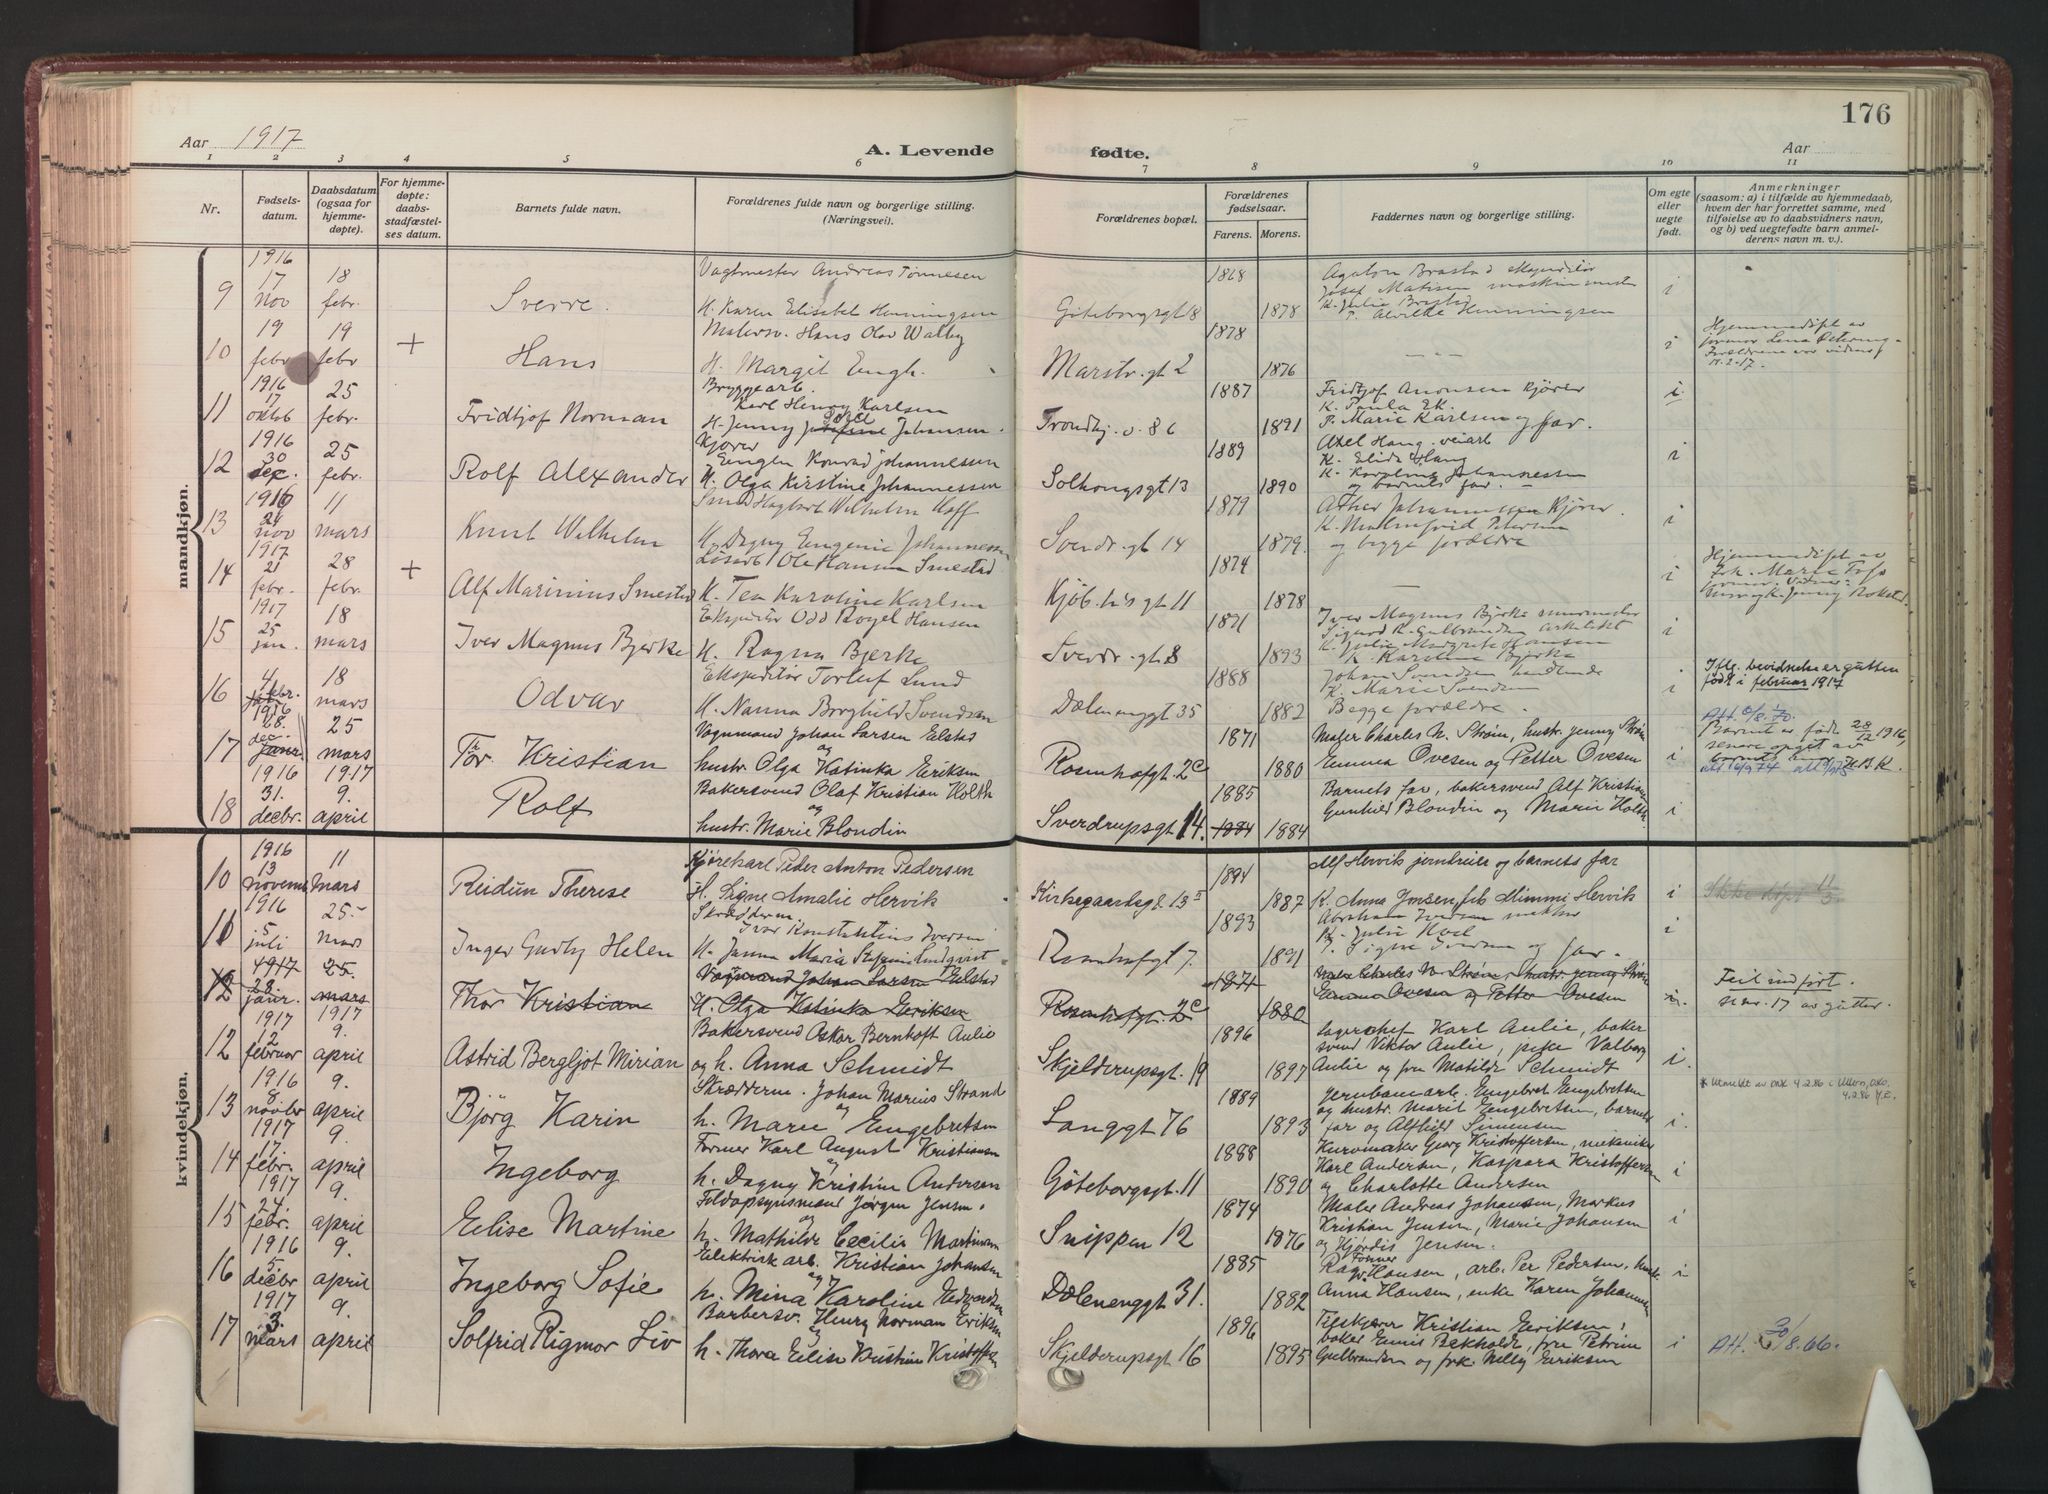 176
Aar 1917
A. Levende fødte.
Aar
1 2 3 4 5 6 7 8 9 10 11
Nr.
Fødsels-
datum.
Daabsdatum
(ogsaa for
hjemme-
døpte).
For hjemme-
døpte:
daabs-
stadfæstel-
ses datum.
Barnets fulde navn.
Forældrenes fulde navn og borgerlige stilling.
(Næringsvei).
Forældrenes bopæl.
Forældrenes
fødselsaar.
Farens. Morens.
Faddernes navn og borgerlige stilling.
Om egte
eller
uegte
født.
Anmerkninger
(saasom: a) i tilfælde av hjemmedaab,
hvem der har forrettet samme, med
tilføielse av to daabsvidners navn,
og b) ved uegtefødte barn anmel-
derens navn m. v.).
mandkjøn.
1916
9 17 nov 18 febr. Sverre.
Vagtmester Andreas Tønnesen
H. Karen Elisabet Henningsen
Gøteborgsgt 8 1868 1878
i
10 19 febr 19 febr + Hans
Malersv. Hans Olav Walby
H. Margit Engh.
Marstr. gt 2 1878 1876
i
Hjemmedøpt av
1916
11 17 oktob 25 febr. Fridtjof Norman
Bryggearb.
Karl Henry Karlsen
H. Jenny Johansen
Trondhj. v. 86 1887 1891
Fridtjof Andnsen Kjører
K. Paula Ek.
P. Marie Karlsen og far.
i
1916
12 30 dec. 25 febr. Rolf Alexander
Kjører
Eugen Konrad Johannessen
H. Olga Kirstine Johannessen
Solhougsgt 13 1889 1890
Axel Haug veiarb
K. Elida Haug
K. Karoline Johannessen
og barnets far.
i
1916
13 21 nov 11 mars Knut Wilhelm
Smed Hagbart Wilhelm Hoff
H. Dagny Eugenie Johannessen
Sverdr. gt 14 1879 1879.
K. Malmfrid Petersen
og begge forældre
i
1917
14 21 febr. 28 febr + Alf Marinius Smestad
Løsarb Ole Hansen Smestad
K. Tea Karoline Karlsen
Kjøb.hvs gt 11 1874 1878
i
Hjemmedøpt av
1917
15 25 jan. 18 mars Iver Magnus Bjerke
Ekspeditør Odd Royel Hansen
H. Ragna Bjerke
Sverdr. gt 8 1891 1893
Iver Magnus Bjerke murmester
Sigurd R. Gulbrandsen arkitekt
K. Julie Margrete Hansen
K. Karoline Bjerke
i
16 4 febr. 18 mars Odvar
Ekspeditør Torleif Lund
H. Nanna Borghild Svendsen
Dælenenggt 35 1888 1882
Johan Svendsen handlende
K. Marie Svendsen
Begge forældre.
i
Iflg. bevidnelse er gutten
født i februar 1917
1916
17 28. dec. 25 mars Tor Kristian
Vognmand Johan Larsen Elstad
og
hustr. Olga Katinka Eriksen
Rosenhofgt. 2c 1871 1880
Maler Charles N. Strøm, hustr. Jenny Strøm
Emma Ovesen og Petter Ovesen
i
Att. 6/8.70.
Barnet er født 28/12 1916,
senere opgit av
1916 1917
18 31. decbr. 9. april Rolf
Bakersvend Olaf Kristian Holth
og
hustr. Marie Blondin
Sverdrupsgt 14. 1885 1884 1884
Barnets far, bakersvend Alf Kristian
Gunhild Blondin og Marie Holth
i
kvindekjøn.
1916
10 13 novemb 11 mars Reidun Therese
Kjørekarl Peder Anton Pedersen
H. Signe Amalie Hervik
Kirkegaardsgt. 13 II 1894 1887
Alf Hervik jernbeier og barnets far
K. Anna Jonsen, frk Mimmi Hervik
i
1916
11 5 juli 25 mars Inger Gudby Helen
Skrædderm.
Ivar Konstantius Iversen
H. Janna Maria Lindqvist
Rosenhofgt 7. 1893 1891
Abraham Iversen
K. Julie Hoel
P. Signe Iversen og far.
i
1917
12 28 januar. 25. mars Thor Kristian
Vognmand Johan Larsen Elstad
H. Olga Katinka Eriksen
Rosenhofgt. 2c 1871 1880
Maler Charles N. Strøm, hustr. Jenny Strøm
Emma Ovesen og Petter Ovesen
Feil indført.
se nr. 17 av gutter.
1917 1917
12 12 februar 9. april Astrid Bergljot Mirian
Bakersvend Oskar Bernhoft Aulie
og h. Anna Schmidt
Skjelderupsgt. 19 1896 1897
Lagerchef Karl Aulie, baker
svend Viktor Aulie, pike Valborg
Aulie og fru Matilde Schmidt
i.
1916
13 8 novbr 9. april Bjørg Karin
Skrædderm. Johan Marius Strand
og
h. Marie Engebretsen
Langgt 76 1889 1893
Jernbanearb. Engebret Engebretsen
og hustr. Marit Engebretsen, barnets
far og Alfhild Simensen
i.
1917
14 17. febr. 9. april Ingeborg
Former Karl August Kristiansen
og
h. Dagny Kristine Andersen
Gøteborgsgt. 11 1888 1890
Kurvmaker Georg Kristoffersen, mekaniker
Karl Andersen, Kaspara Kristoffersen
og Charlotte Andersen
i
1917
15 24. febr. 9. april Elise Martine
Toldopsynsmand Jørgen Jensen.
og
h. Mathilde Cecilie Martinsen
Snippen 12 1874 1876
Maler Andreas Johansen, Markus
Kristian Jensen, Marie Johansen
og Hjørdis Jensen.
i
1916
16 5. decbr 9. april Ingeborg Sofie
Elektrisk arb. Kristian Johansen
og
h. Mina Karoline Edvardsen
Dælenenggt 31. 1885 1882
Former
Ragv. Hansen, arb. Per Pedersen, hustr.
Anna Hansen, enke Karen Johannesen
i
1917
17 3. mars 9. april Solfrid Rigmor Liv
Barbersv. Henry Norman Eriksen
og
h. Thora Elise Kristine Kristoffersen
Skjelderupsgt 16 1896 1895
Filskjærer Kristian Eriksen,
baker Emil Bekholdt, fru Petrine
Gulbrandsen og frk. Nelly Eriksen
i
Att. 30/8.66.